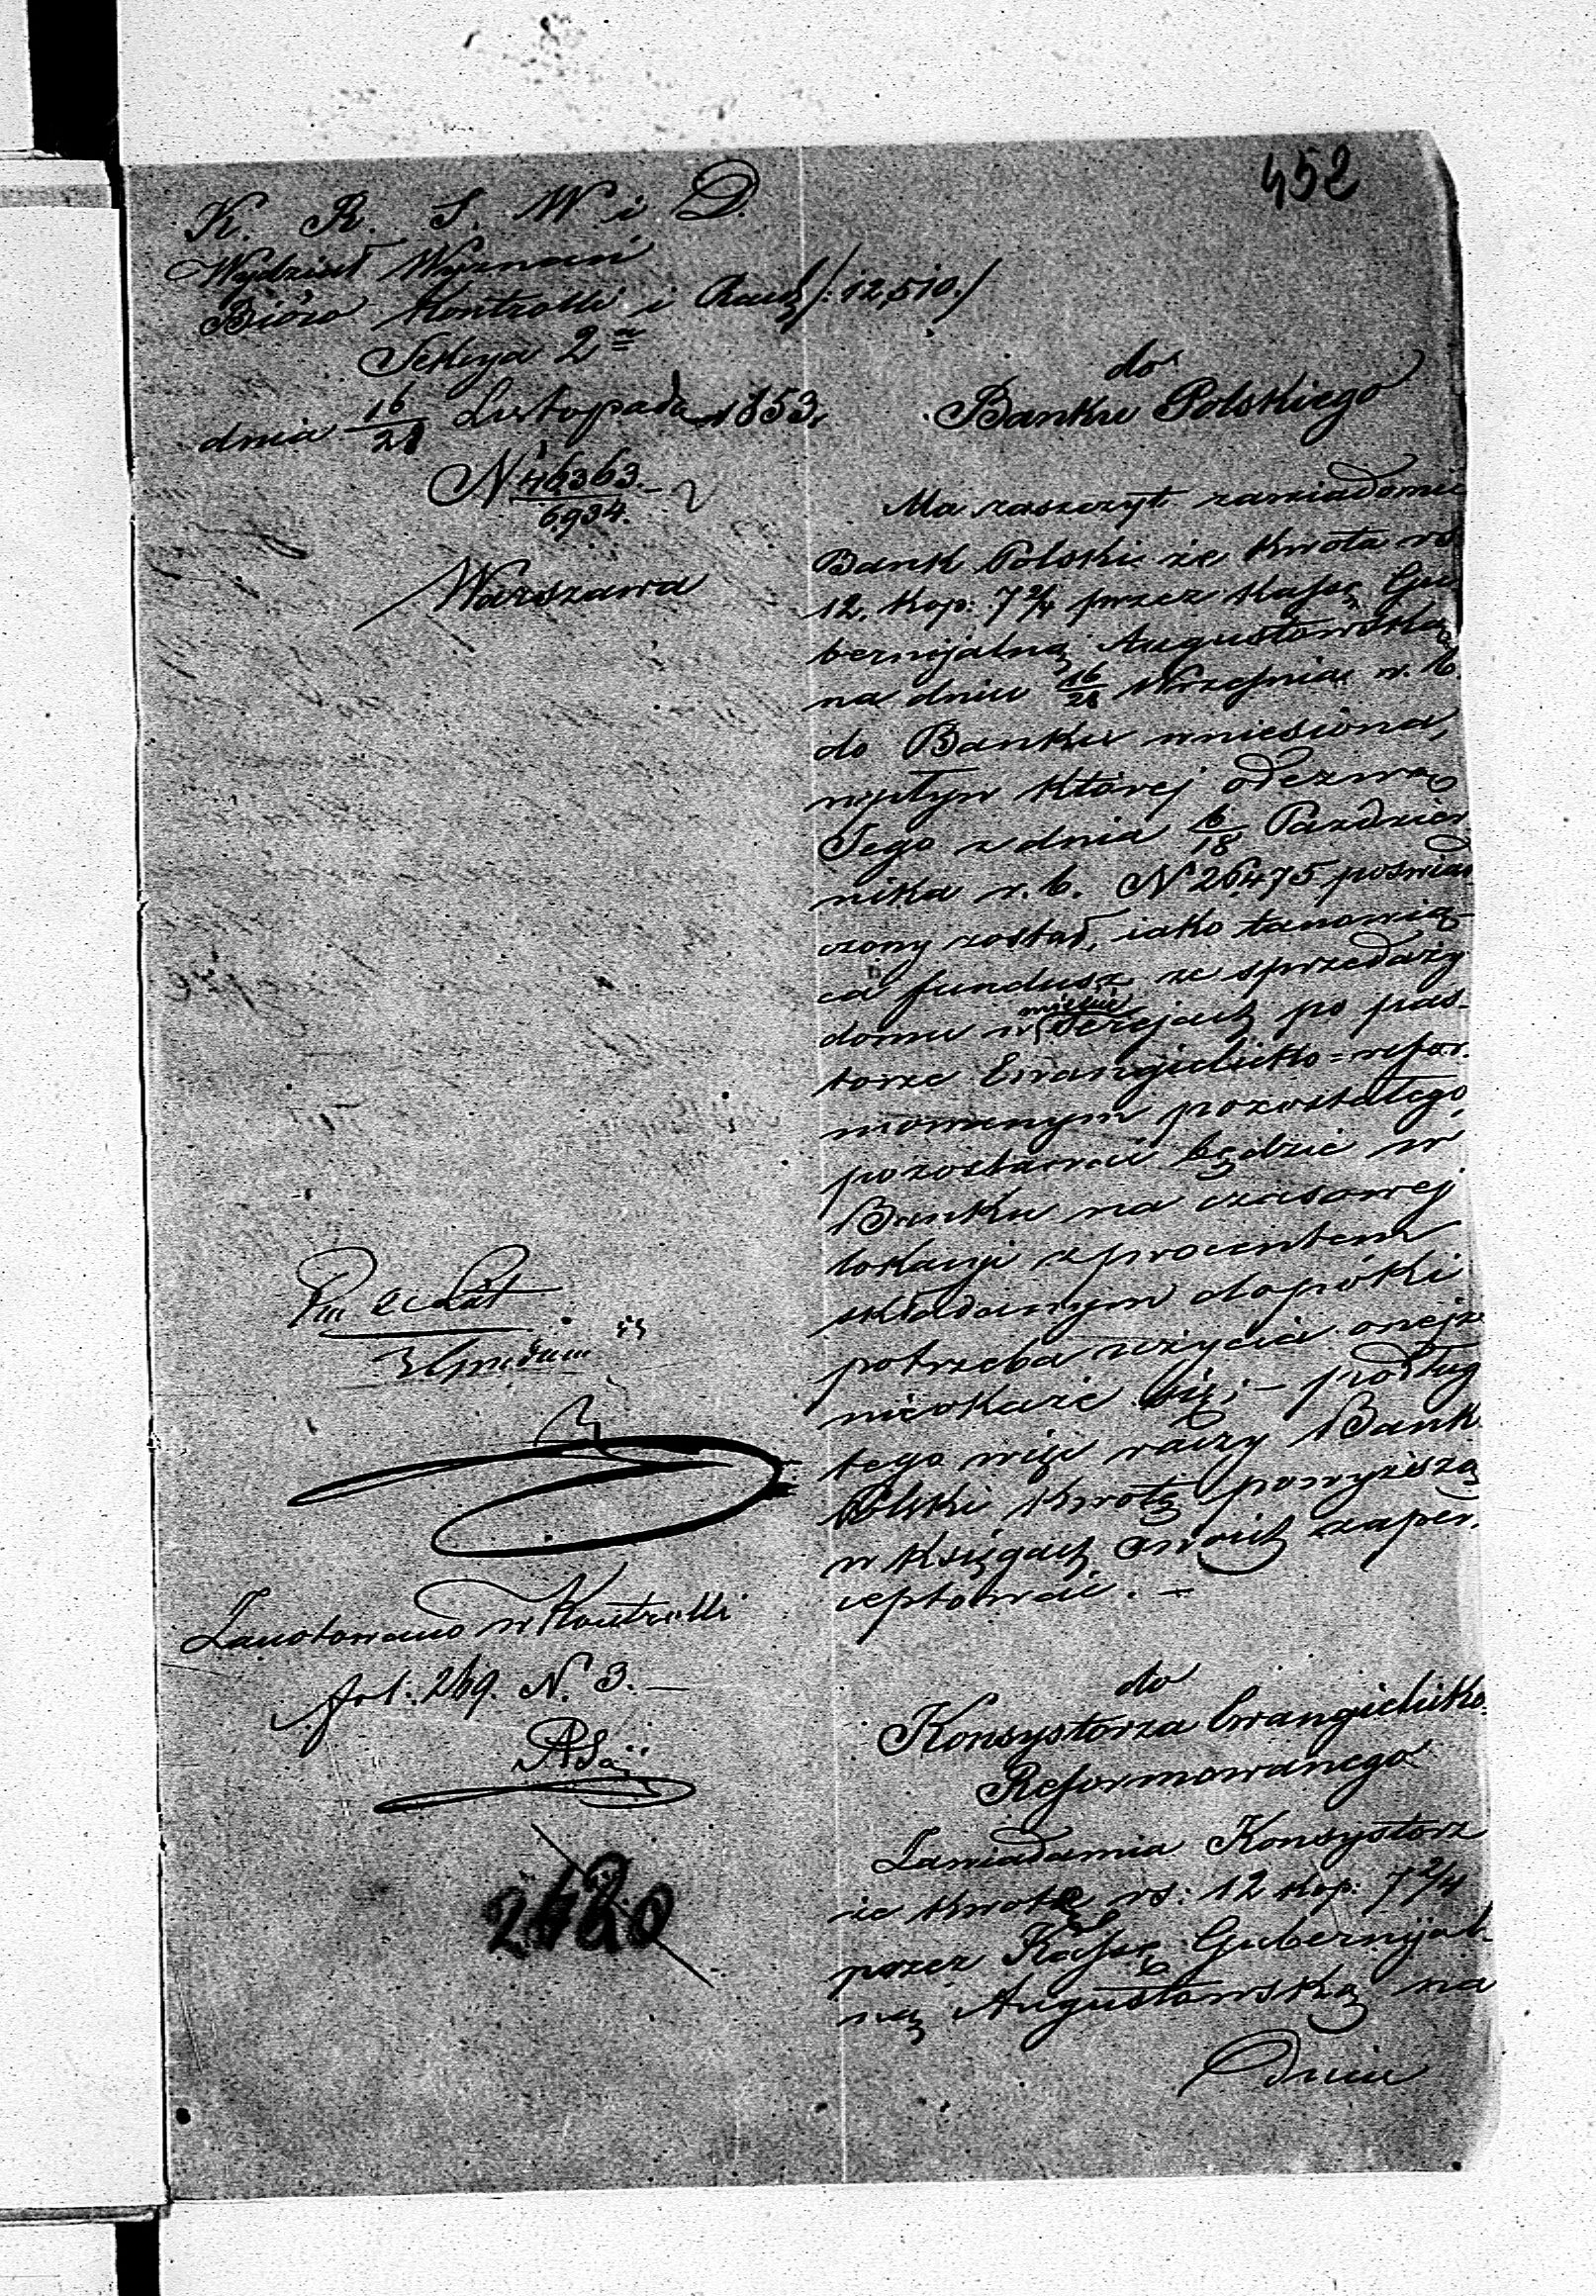 452
K. R. S. W. i D.
Wydział Wyznań
Bióro Kontrolli i Rach /: 12,510./
Sekcya 2ª
dnia 16/28 Listopada 1853.
N 46363/6934.
Warszawa
do
Banku Polskiego
Ma zaszczyt zawiadomić
Bank Polski że kwota rs
12. kop: 7 2/4 przez Kassę Gu
bernijalną Augustowską
na dniu 16/28 Września r. b.
do Banku wniesiona,
wpływ której odezwą
Jego z dnia 6/18 Paździer
nika r. b. N 26,475 poświad
czony został, iako tanowią-
ca fundusz ze sprzedaży
domu w mieście Serejach po pas-
torze Ewangielicko=refor.
mowanym pozostałego,
pozostawać będzie w
Banku na czasowej
lokacyi z procentem
składanym dopóki
potrzeba użycia onejże
nieokaże się; – podług
tego więc raczy Bank
Polski kwotę powyższą
w księgach swoich zaper.
ceptować. –
Zanotowano w Kontrolli
fol: 269. N. 3. –
do
Konsystorza Ewangielicko=
Reformowanego
Zawiadamia Konsystorz
że kwotę rs: 12 kop: 7 2/4
przez Kassę Gubernijal-
ną Augustowską na
dniu